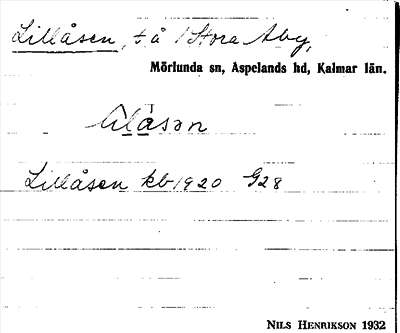 Lillåsen, t å 1 Stora Åby,
Mörlunda sn, Aspelands hd, Kalmar län.
lilåsən
Lillåsen kb 1920 G28
NILS HENRIKSON 1932